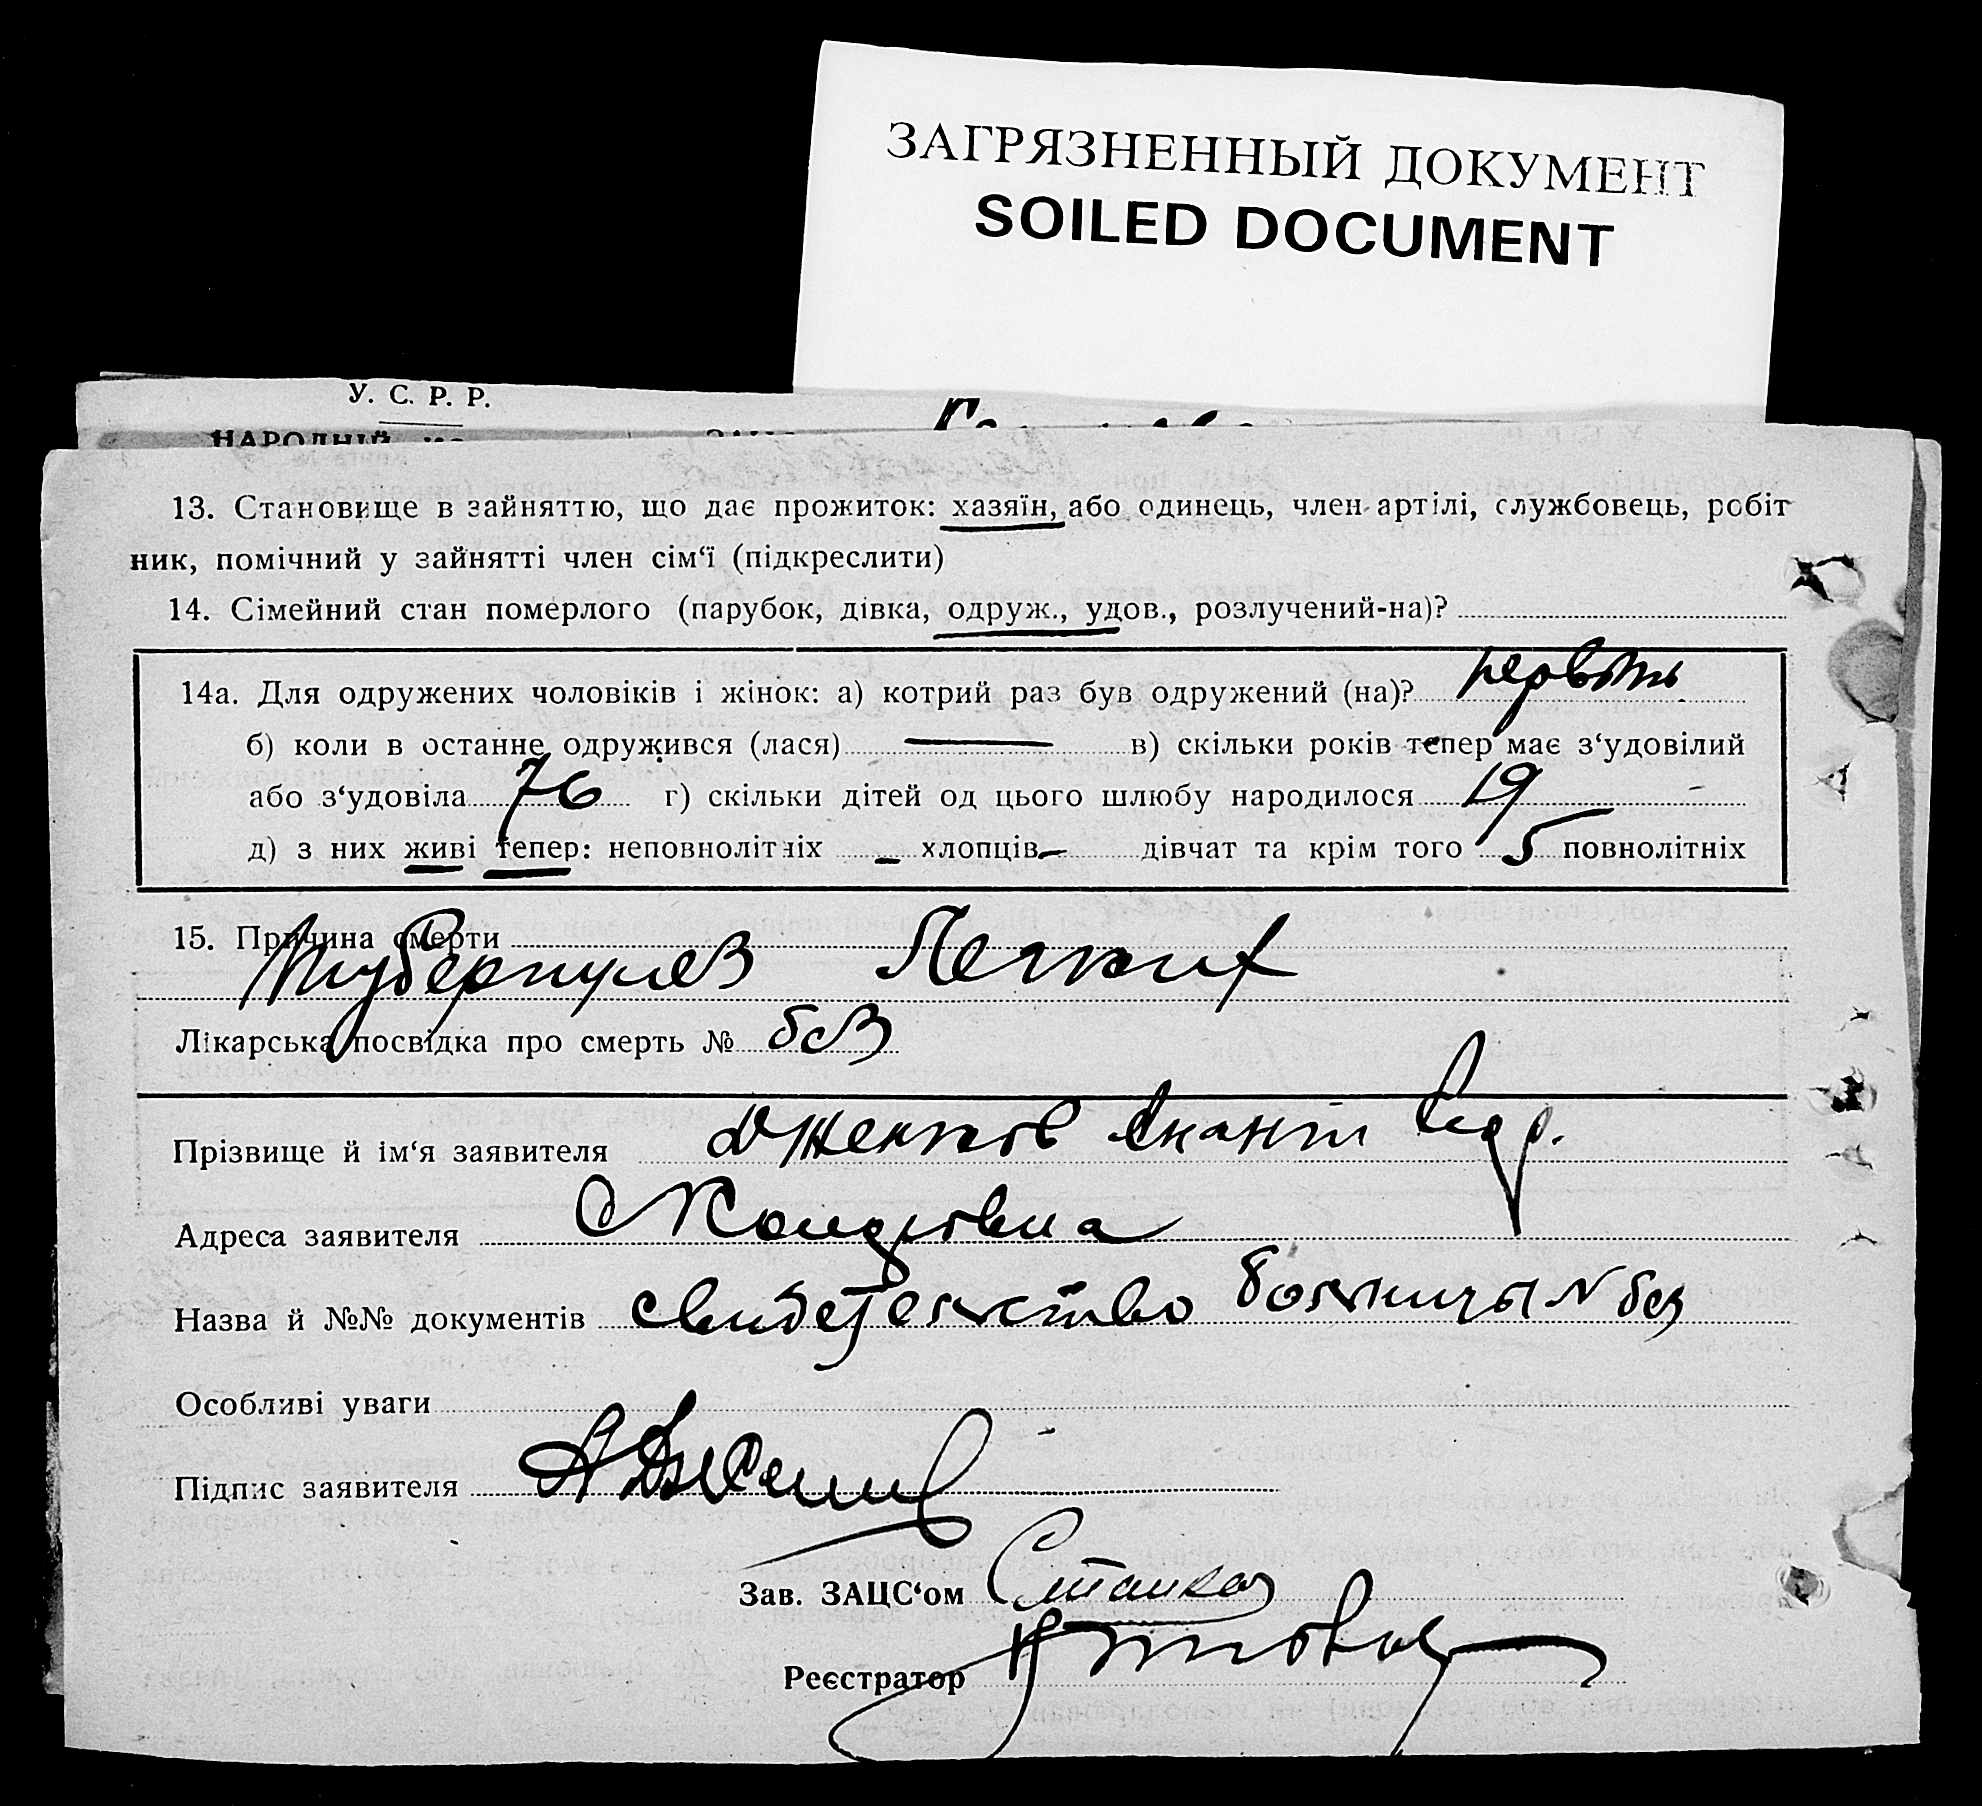 ЗАГРЯЗНЕННЫЙ ДОКУМЕНТ
SOILED DOCUMENT
У. С. Р. Р.
НАРОДНІЙ
13. Становище в зайняттю, що дає прожиток: хазяїн, або одинець, член артілі, службовець, робіт
ник, помічний у зайнятті член сім‘ї (підкреслити)
14. Сімейний стан померлого (парубок, дівка, одруж., удов., розлучений-на)?
14а. Для одружених чоловіків і жінок: а) котрий раз був одружений (на)?
б) коли в останне одружився (лася) — в) скільки років тепер має з‘удовілий
або з‘удовіла 76 г) скільки дітей од цього шлюбу народилося 19
д) з них живі тепер: неповнолітніх – хлопців – дівчат та крім того 5 повнолітніх
15. Причина смерти
Туберкулез Легких
Лікарська посвідка про смерть № без
Прізвище й ім‘я заявителя
Адреса заявителя
Назва й №№ документів свидетельство больницы N без
Особливі уваги
Підпис заявителя
Зав. ЗАЦС‘ом
Реєстратор